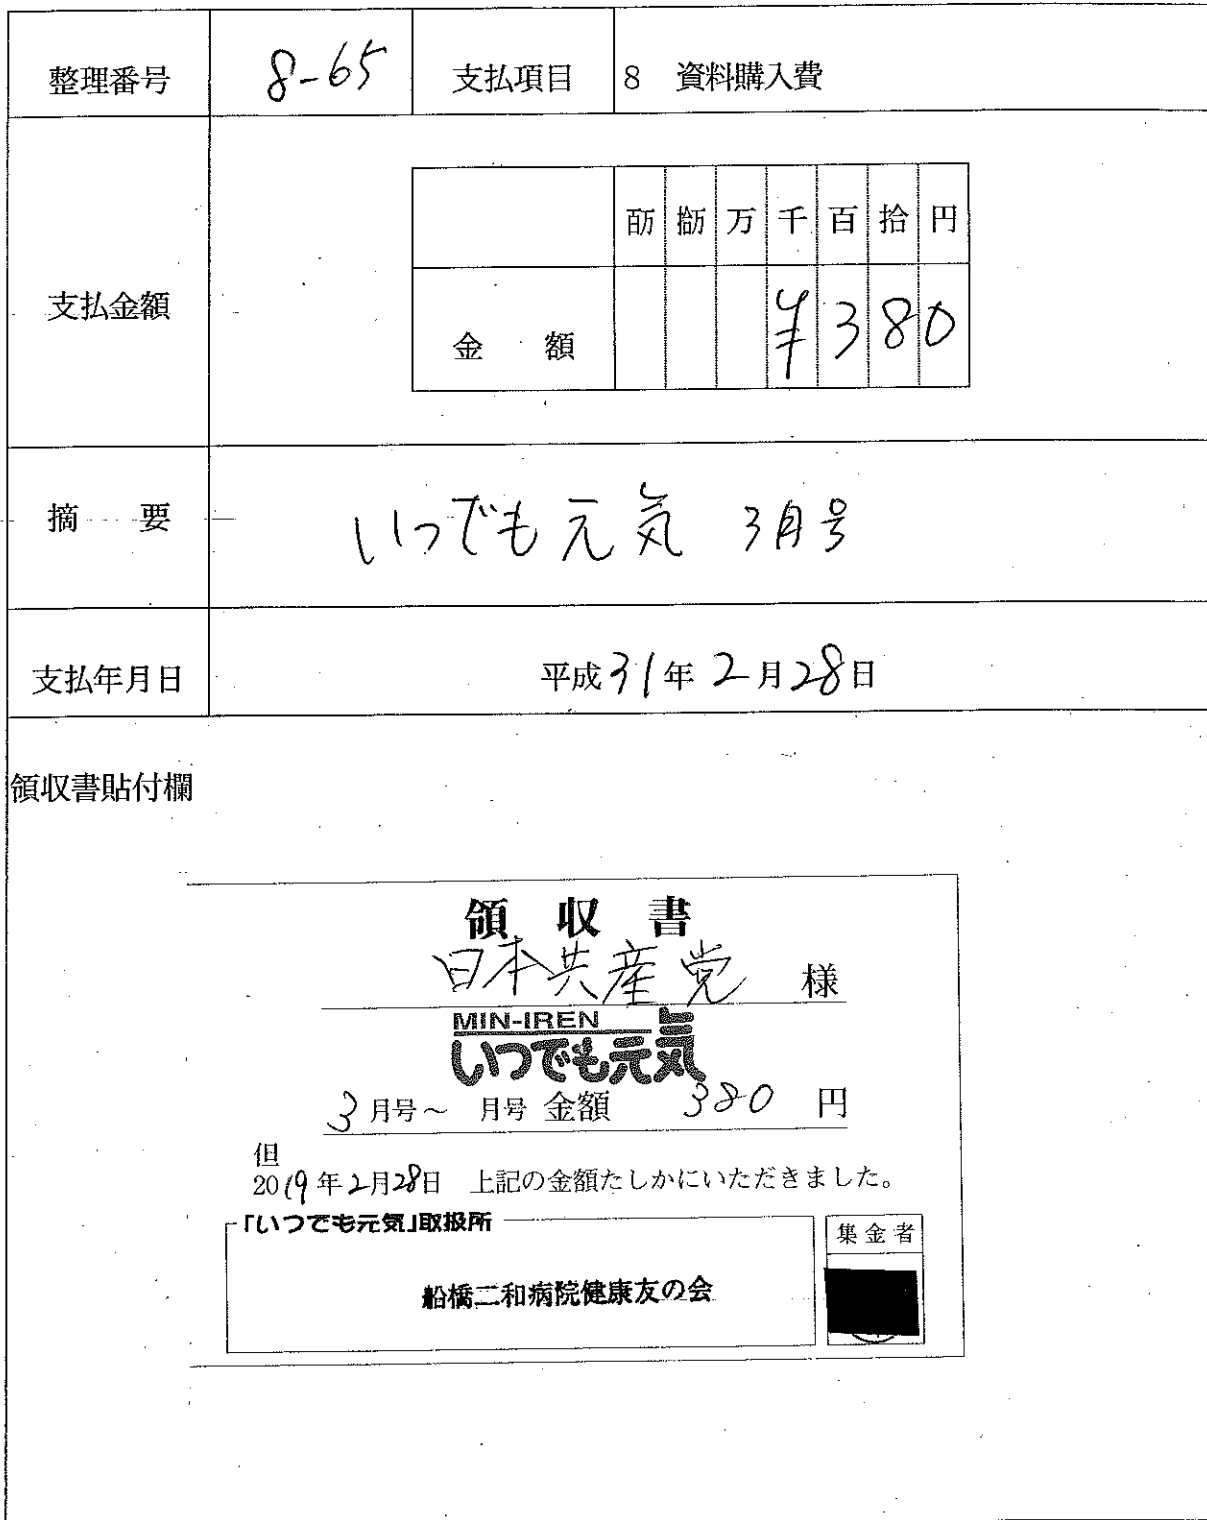 整理番号 8-65 支払項目 8 資料購入費
百万 拾万 万 千 百 拾 円
支払金額
金 額 ¥380
摘 要 いつでも元気 3月号
支払年月日 平成31年2月28日
領収書貼付欄
領収書
日本共産党 様
MIN-IREN
いつでも元気
3月号～ 月号 金額 380 円
但
2019年2月28日 上記の金額たしかにいただきました。
「いつでも元気」取扱所
集金者
船橋二和病院健康友の会